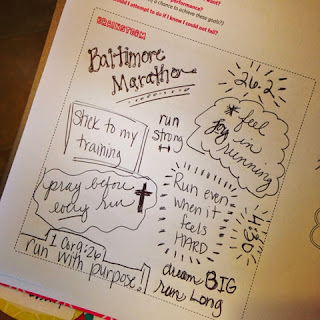 performance?
a chance to achieve these goals?)
would I attempt to do if I knew I could not fail?
BRAINSTORM
Baltimore
Marathon
26.2
Stick to my
training
run
strong
* feel
joy in
running
pray before
every run
Run even
when it
feels
HARD
H2O
1 Cor 9:26
run with purpose.
dream BIG
run Long